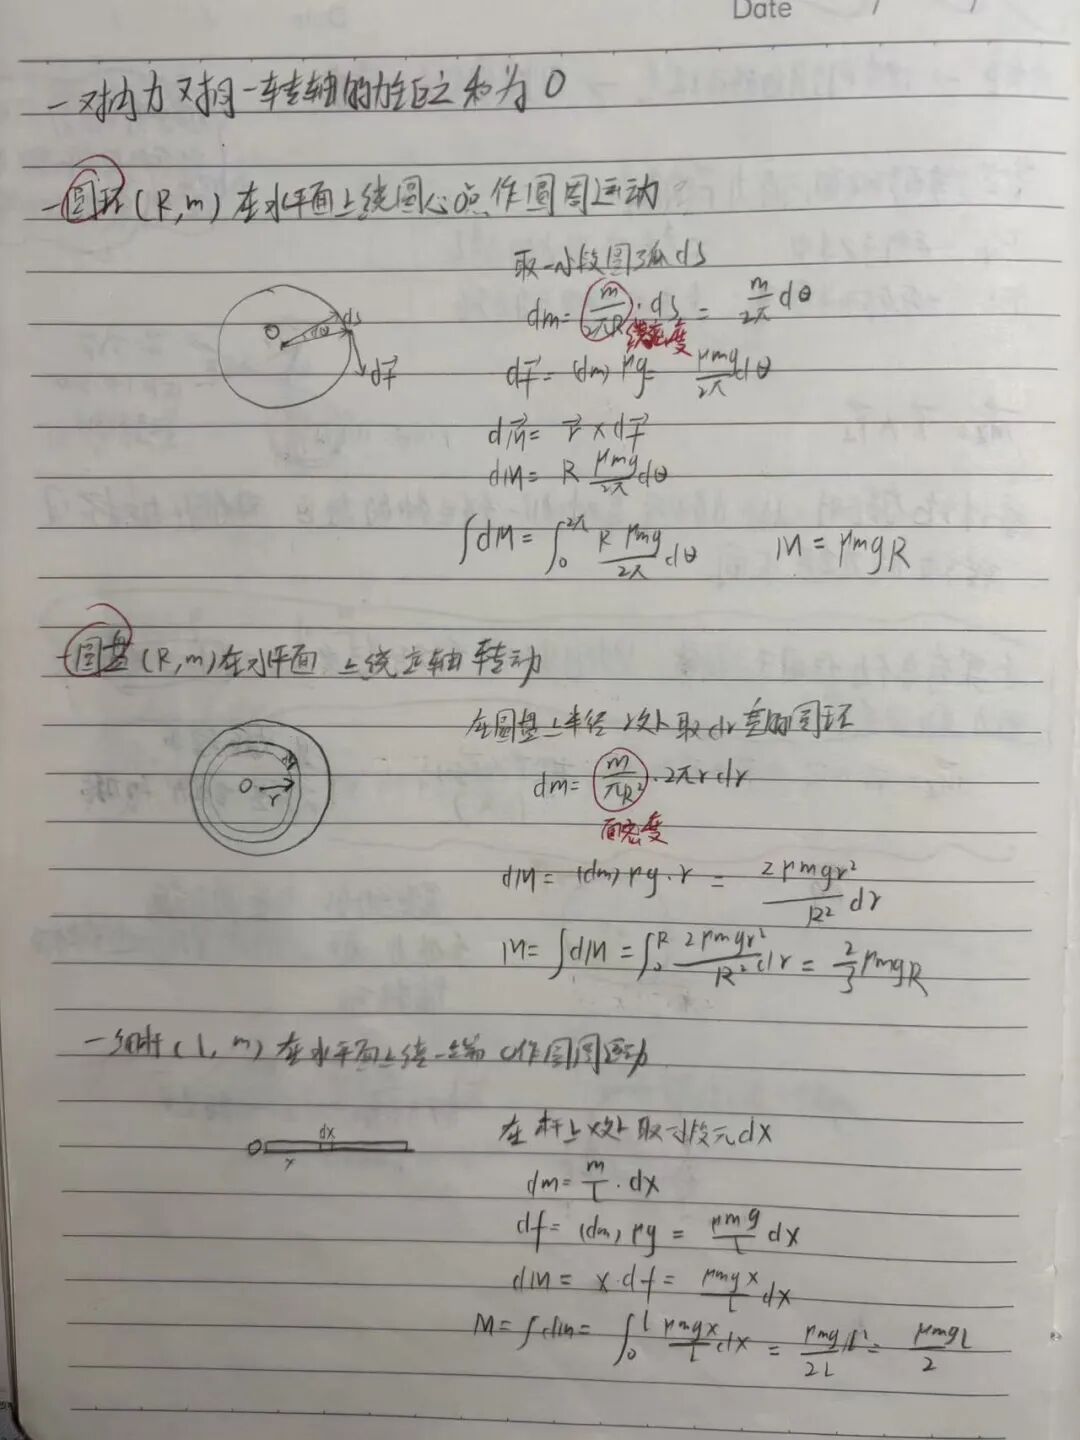 Date
一对内力对同一转轴的力矩之和为0
一圆环(R,m)在水平面上绕圆心O点作圆周运动
取一小段圆弧ds
dm = m/2πR · ds = m/2π dθ
线密度
O dθ ds
df⃗
df⃗ = (dm) μg = μmg/2π dθ
dM⃗ = r⃗ × df⃗
dM = R μmg/2π dθ
∫dM = ∫₀^2π R μmg/2π dθ M = μmgR
一圆盘(R,m)在水平面上绕立轴转动
在圆盘上半径r处取dr宽的圆环
dm = m/πR² · 2πr dr
面密度
O r dr
dM = (dm) μg · r = 2μmgr²/R² dr
M = ∫dM = ∫₀^R 2μmgr²/R² dr = 2/3 μmgR
一细杆(l,m)在水平面上绕一端O作圆周运动
在杆上x处取小段元dx
O x dx
dm = m/L · dx
df = (dm) μg = μmg/L dx
dM = x·df = μmgx/L dx
M = ∫dM = ∫₀^L μmgx/L dx = μmg/2L L² = μmgL/2